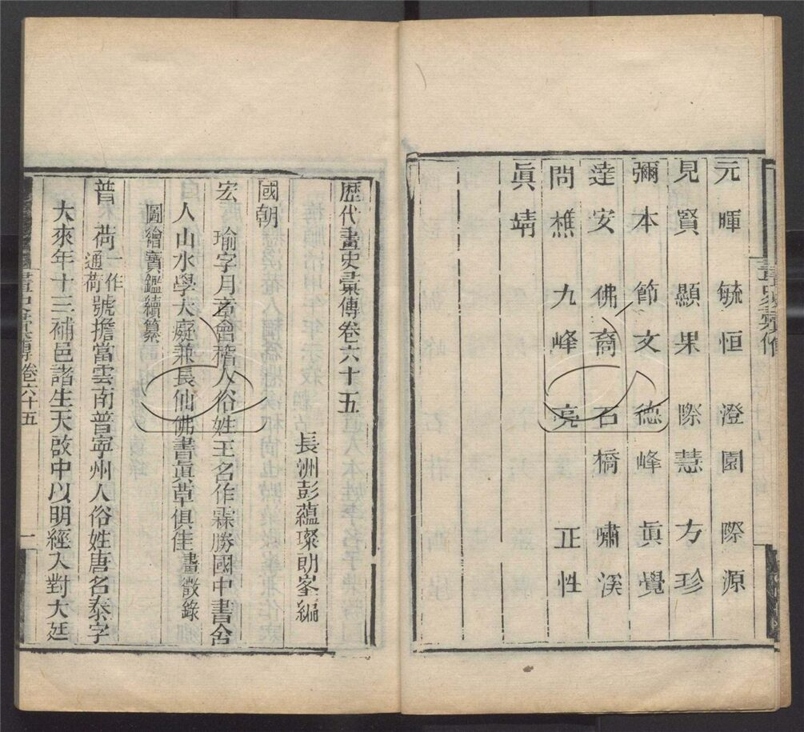 元暉　毓恒　澄園　際源
見賢　顯果　際慧　方珍
彌本　節文　德峰　眞覺
達安　佛裔　石橋　嘯溪
問樵　九峰　亮　正性
眞靖
歷代畫史彙傳卷六十五
長洲彭蘊璨朗峯編
國朝
宏　瑜字月章會稽人俗姓王名作霖勝國中書舍
人山水學大癡兼長仙佛書眞草俱佳畫徵錄
圖繪寶鑑續纂
普　荷一作通荷號擔當雲南普寧州人俗姓唐名泰字
大來年十三補邑諸生天啟中以明經入對大廷
畫史彙傳　卷六十五　一